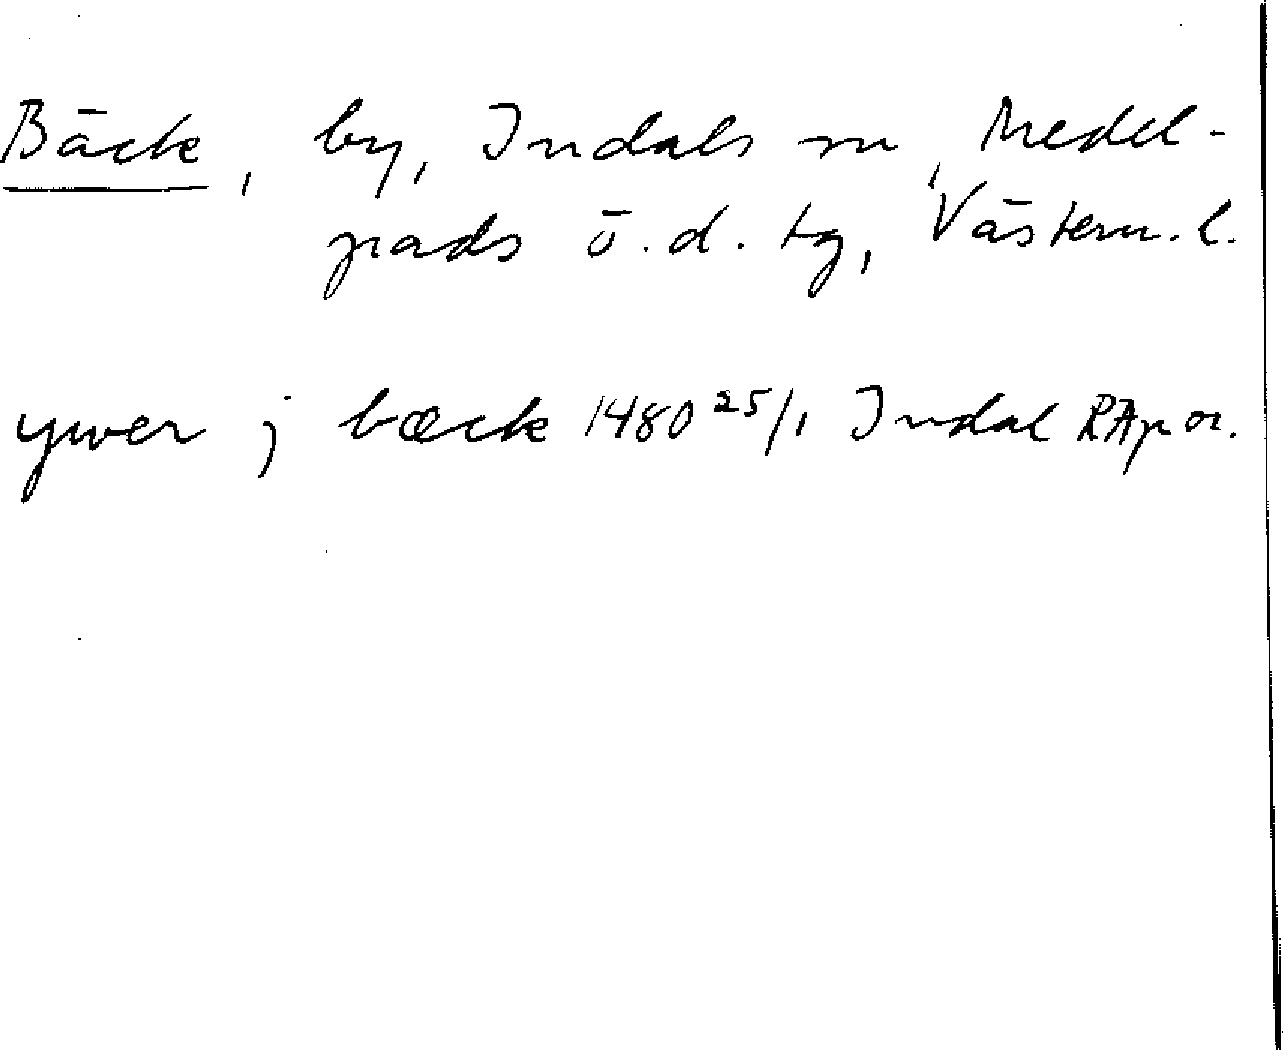 Bäck, by, Indals sn, Medel-
pads ö.d. tg, Västern.l.
ywer j bæck 1480 25/1 Indal RAp or.